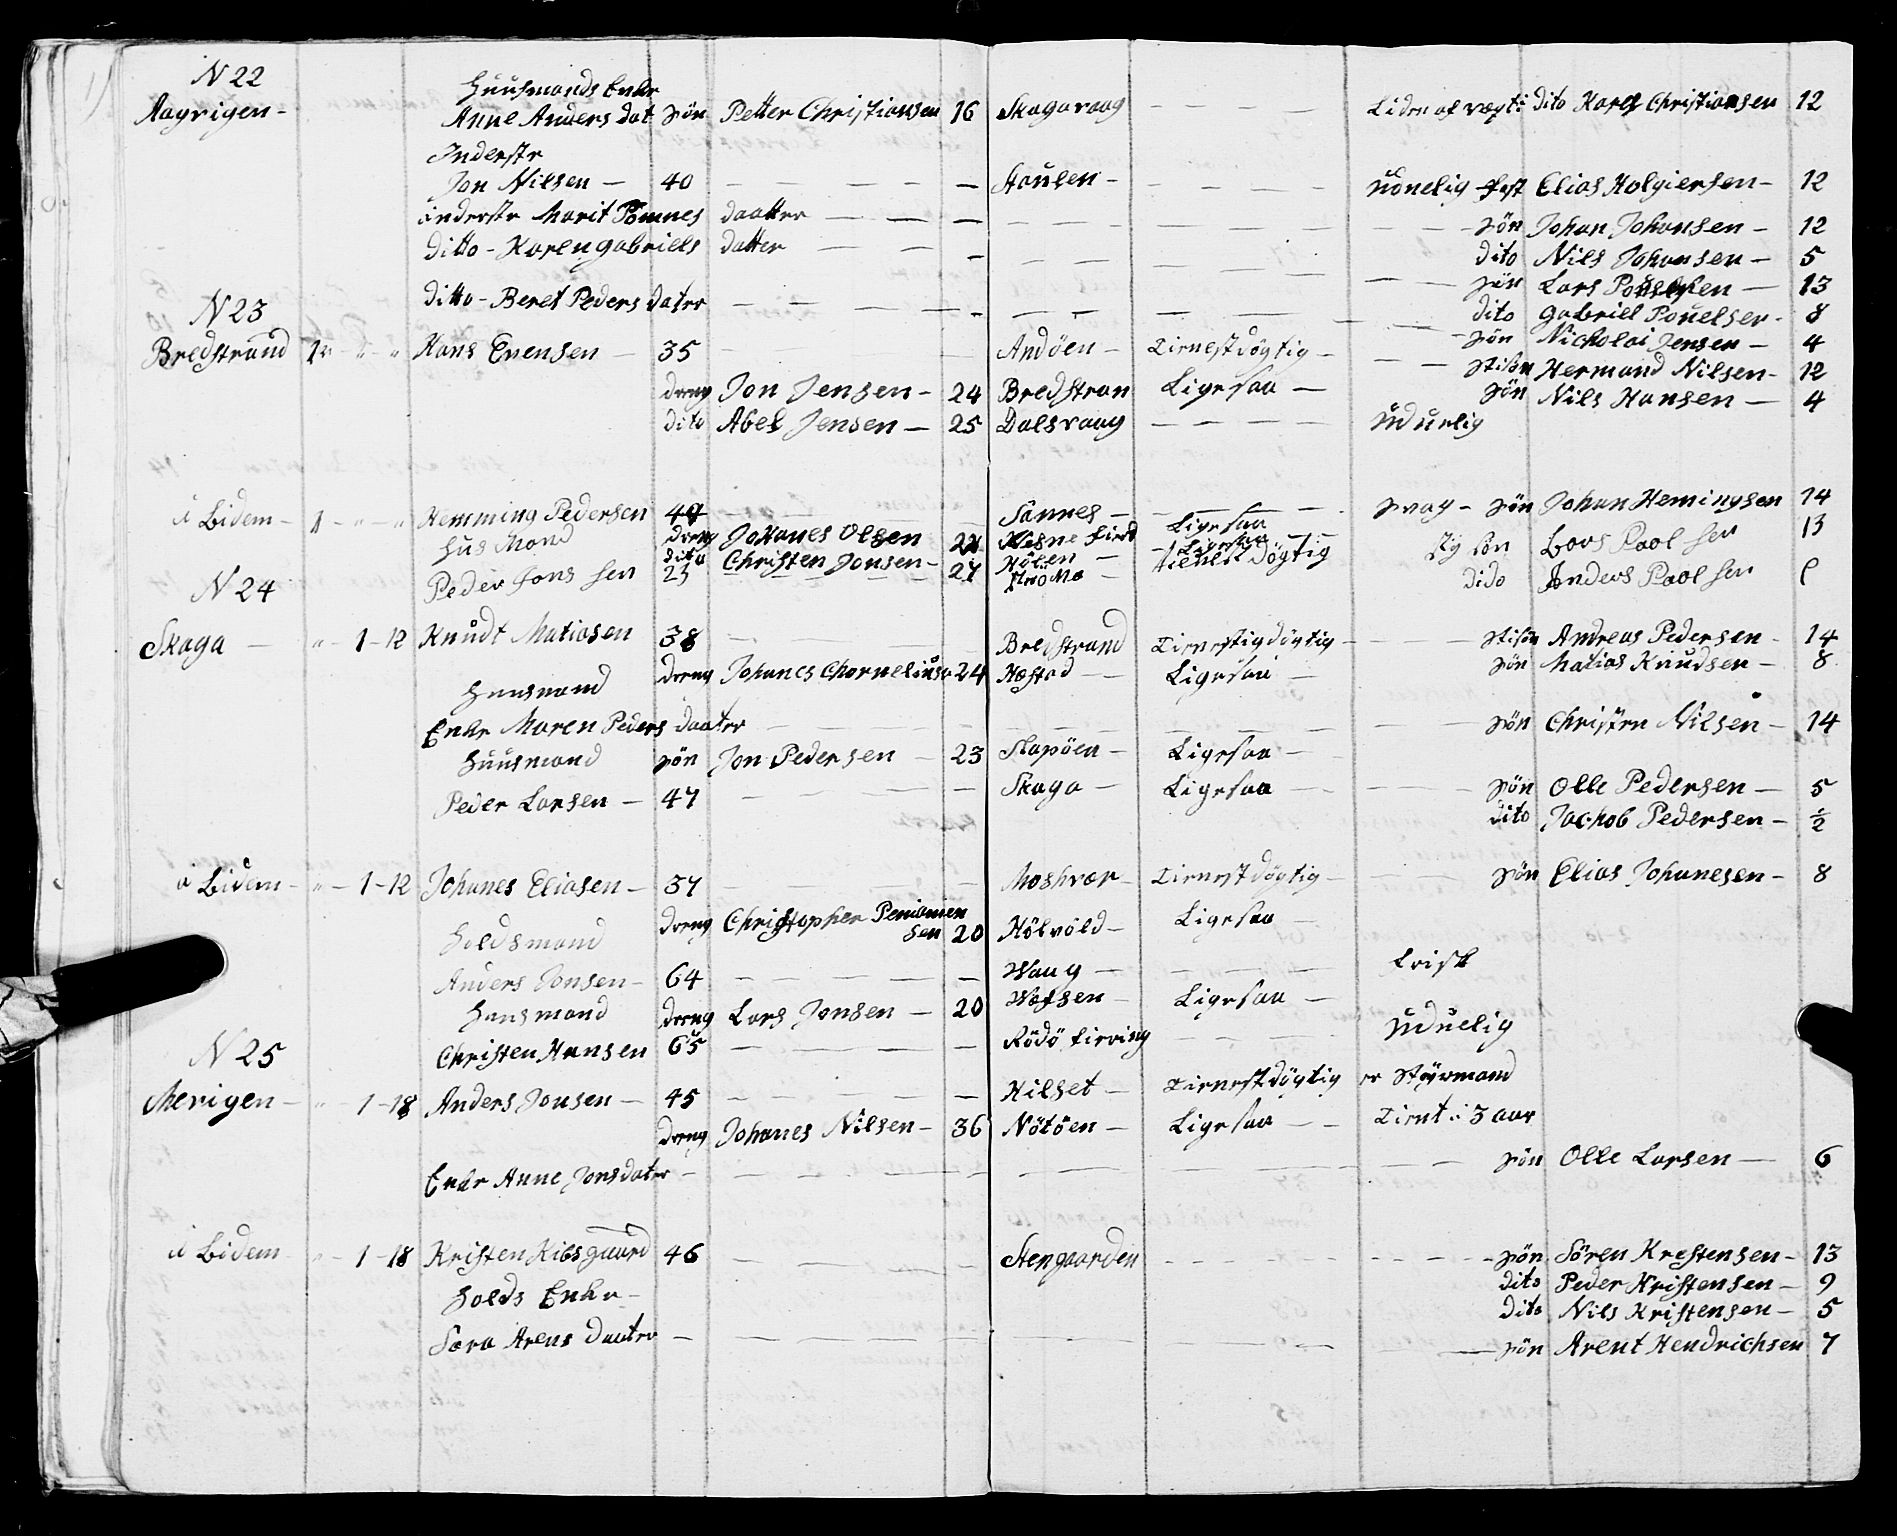 N 22
Huusmands Enke
Aaÿrigen - Anne Anders dat Søn Petter Christiansen 16 Skagavaag - - - Liden af vægt dito Karel Christiansen 12
Inderstr
Jon Nilsen - 40 - - - - Stousen - - - - udnelig - fost Elias Holgiersen - 12
inderstr Marit Pouines daatter - - - - - - - - - Søn Johan Johansen - 12
Ditto - Karen gabriels datter - - - - - - - dito Nils Johansen - 5
Ditto - Beret Peders dater - - - - - - - - Søn Lars Pouelsen - 13
dito gabriell Pouelsen - 8
N 23
Bredstrand 1 - " - " Hans Evensen - 35 - - Andöen - Tienestdögtig - - Søn Nicholai Jensen - 4
Stisøn Hermand Nilsen - 12
dreng Jon Jensen - 24 Bredstran Ligesaa - Søn Nils Hansen - 4
dito Abel Jensen - 25 Dalsvaag - - - - uduelig
i Bidem - 1 - " - " Hemming Pedersen 49 - - - Sannes - - - - svag - søn Johan Hemingsen 14
Hus Mand dreng Johanes Olsen 22 Nesne fierd Ligesaa - - sty søn Lars Paol sen 13
dito Christen Jonsen - 27 Hölen - Ligesaa
Peder Jons sen 25 - - - - - tienest dögtig dido Anders Paol sen
N 24
Skaga - " - 1 - 12 Knudt Matiasen 38 - - Bredstrand Tienestigdögtig - - - stisön Andreas Pedersen - 14
dreng Johanes Chornelius 24 Hestad - - Ligesaa - søn Matias Knudsen - 8
Huusmand
Enke Maren Peders daater - - - - - - - - søn Christen Nilsen - 14
Huusmand søn Jon Pedersen - 23 Slapöen - Ligesaa -
Peder Larsen - 47 - - - - Skaga - Ligesaa - - - - søn Olle Pedersen - 5
dito Jachob Pedersen - ½
i Bidem - " - 1 - 12 Johanes Eliasen - 37 - - Moshvær - Tienestdögtig - - - søn Elias Johanesen - 8
dreng Christopher Peniamen
sen 20 Hölvöld - Ligesaa -
Holdsmand
Anders Jonsen - 64 - - - - Waag - - - - Krisk
Hansmand dreng Lars Jonsen - 20 Wefsen - Ligesaa -
Christen Hansen 65 - - - - Rödö fierving - - - uduelig
N 25
Merigen - " - 1 - 18 Anders Jonsen - 45 - - - - Hilset - Tienestdögtig er Styrmand
dreng Johanes Nilsen - 36 Nötöen - Ligesaa - - Tient i 3 aar
Enke Anne Jonsdater - - - - - - - - - søn Olle Larsen - 6
i Bidem - " - 1 - 18 Kristen Kibsgaard 46 - - - Stengaarden - - - - - - søn Sören Krestensen - 13
dito Peder Kristensen - 9
Holds Enke - dito Nils Kristensen - 5
Sara Arens Daater - - - - - - - - søn Arent Hendrichsen 7